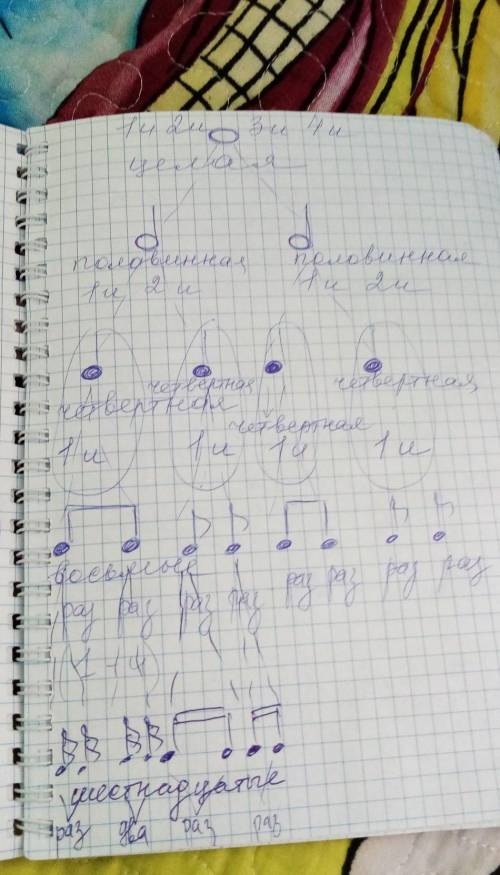 1и 2и 3и 4и
целая
половинная половинная
1и 2 и 1и 2и
четвертная четвертная
четвертная четвертная
1 и 1 и 1и 1 и
восьмые
раз раз раз раз раз раз раз раз
шестнадцатые
раз два раз раз